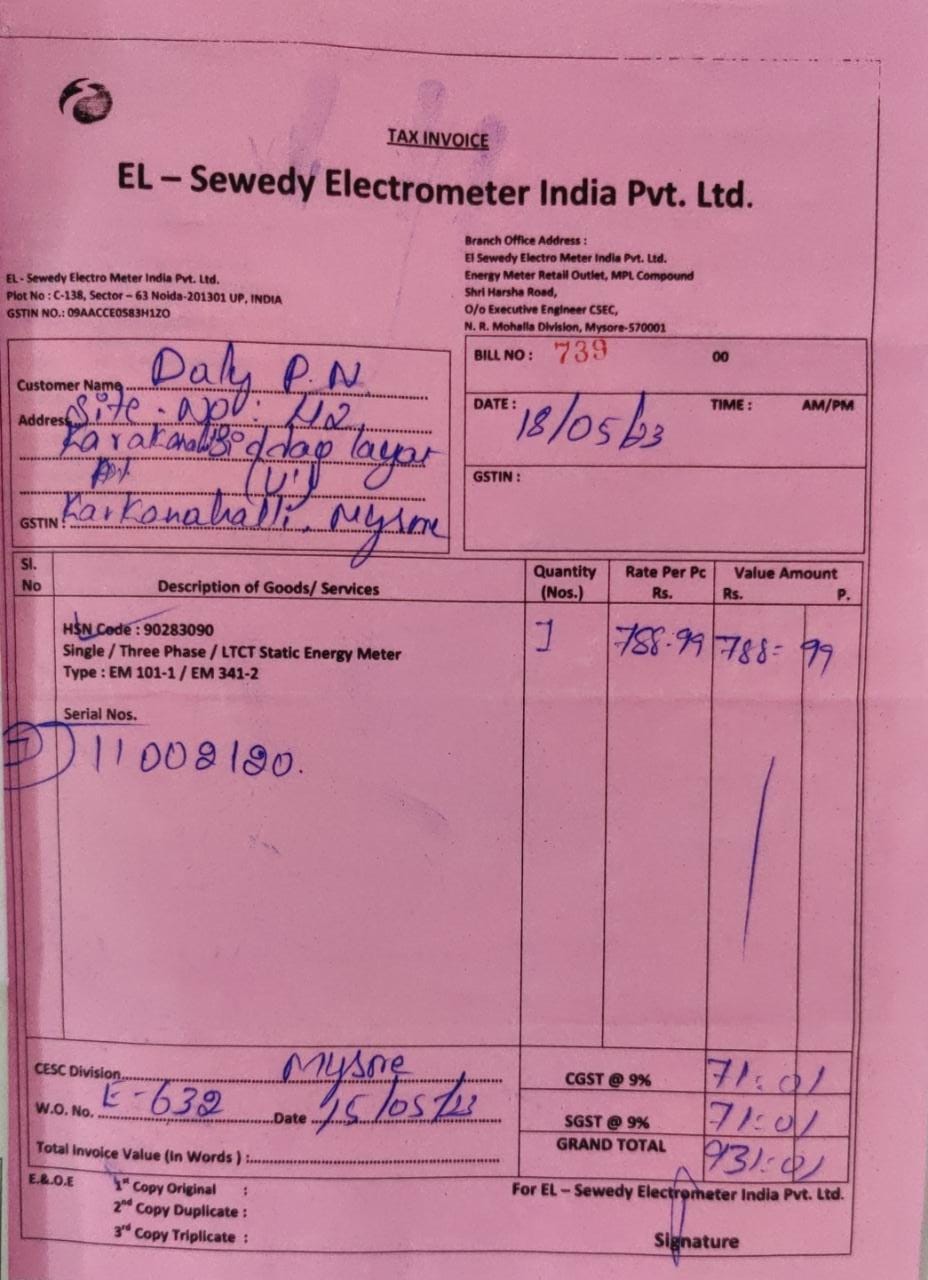 TAX INVOICE
EL – Sewedy Electrometer India Pvt. Ltd.
EL - Sewedy Electro Meter India Pvt. Ltd.
Plot No : C-138, Sector – 63 Noida-201301 UP, INDIA
GSTIN NO.: 09AACCE0583H1ZO
Branch Office Address :
El Sewedy Electro Meter India Pvt. Ltd.
Energy Meter Retail Outlet, MPL Compound
Shri Harsha Road,
O/o Executive Engineer CSEC,
N. R. Mohalla Division, Mysore-570001
Customer Name Daly P. N.
Address Site. No: 42,
layar
GSTIN : Karkanahalli, Mysore
BILL NO : 739 00
DATE : 18/05/23 TIME : AM/PM
GSTIN :
Sl. No Description of Goods/ Services Quantity (Nos.) Rate Per Pc Rs. Value Amount Rs. P.
HSN Code : 90283090
Single / Three Phase / LTCT Static Energy Meter
Type : EM 101-1 / EM 341-2
1 788.99 788= 99
Serial Nos.
11002120.
CESC Division Mysore
W.O. No. E-632 Date 15/05/23
Total Invoice Value (In Words ) :
CGST @ 9% 71:01
SGST @ 9% 71:01
GRAND TOTAL 931:01
E.&.O.E
1st Copy Original :
2nd Copy Duplicate :
3rd Copy Triplicate :
For EL – Sewedy Electrometer India Pvt. Ltd.
Signature